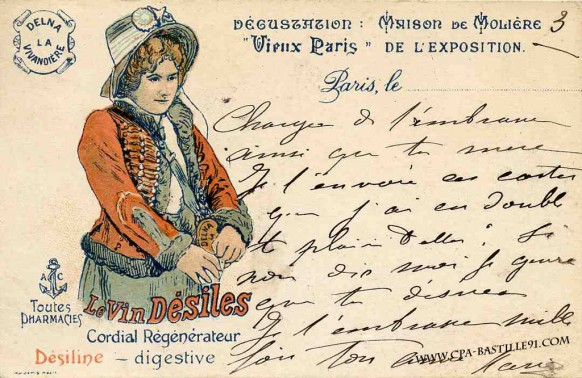 DELNA
LA
VIVANDIÈRE
DÉGUSTATION : MAISON DE MOLIÈRE
"Vieux Paris" DE L'EXPOSITION.
3
Paris, le
Chargée de t'embrasser
ainsi que ta mere
Je t'envoie ces cartes
que j'ai en double
te plairont elles? Si
non dis moi le genre
que tu désires
Je t'embrasse mille
fois ton amie Marie
DELNA
A C
Toutes
PHARMACIES
Le Vin Désiles
Cordial Régénérateur
Désiline – digestive
WWW.CPA-BASTILLE91.COM